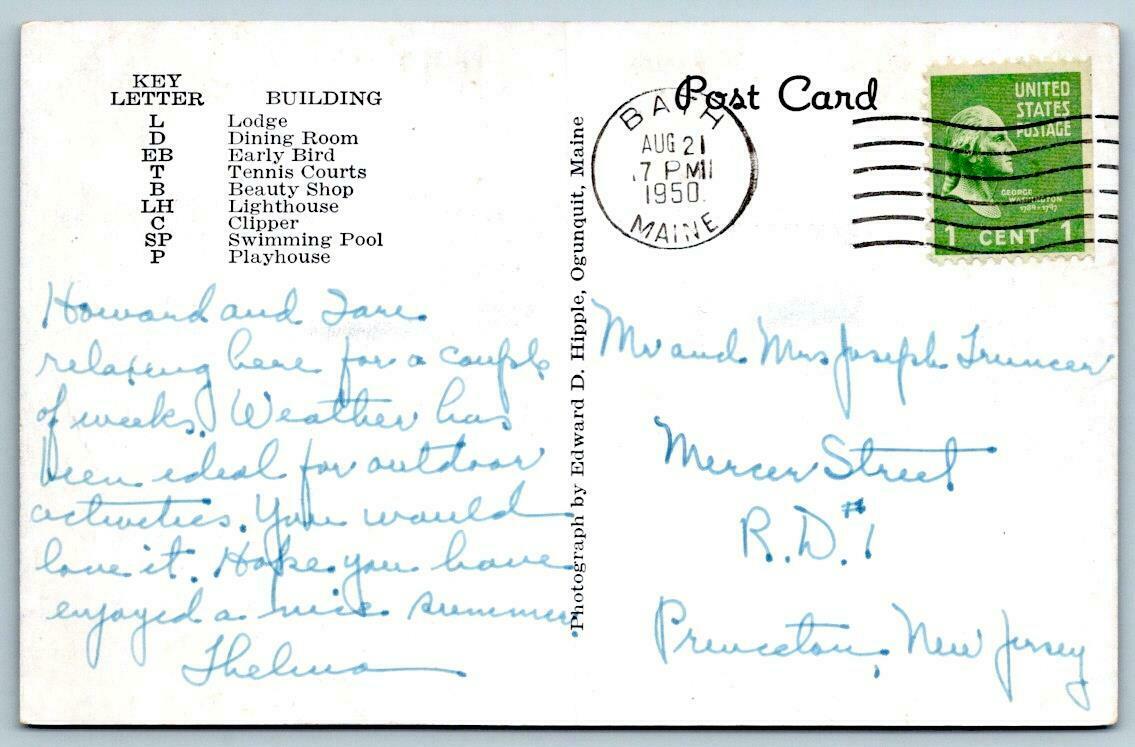 KEY
LETTER BUILDING
L Lodge
D Dining Room
EB Early Bird
T Tennis Courts
B Beauty Shop
LH Lighthouse
C Clipper
SP Swimming Pool
P Playhouse
Howard and I are
relaxing here for a couple
of weeks. Weather has
been ideal for outdoor
activities. You would
love it. Hope you have
enjoyed a nice summer.
Thelma
Photograph by Edward D. Hipple, Ogunquit, Maine
Post Card
BATH
AUG 21
7 PM
1950
MAINE
UNITED
STATES
POSTAGE
GEORGE
WASHINGTON
1789-1797
1 CENT 1
Mr and Mrs Joseph Truncer
Mercer Street
R.D. #1
Princeton, New Jersey